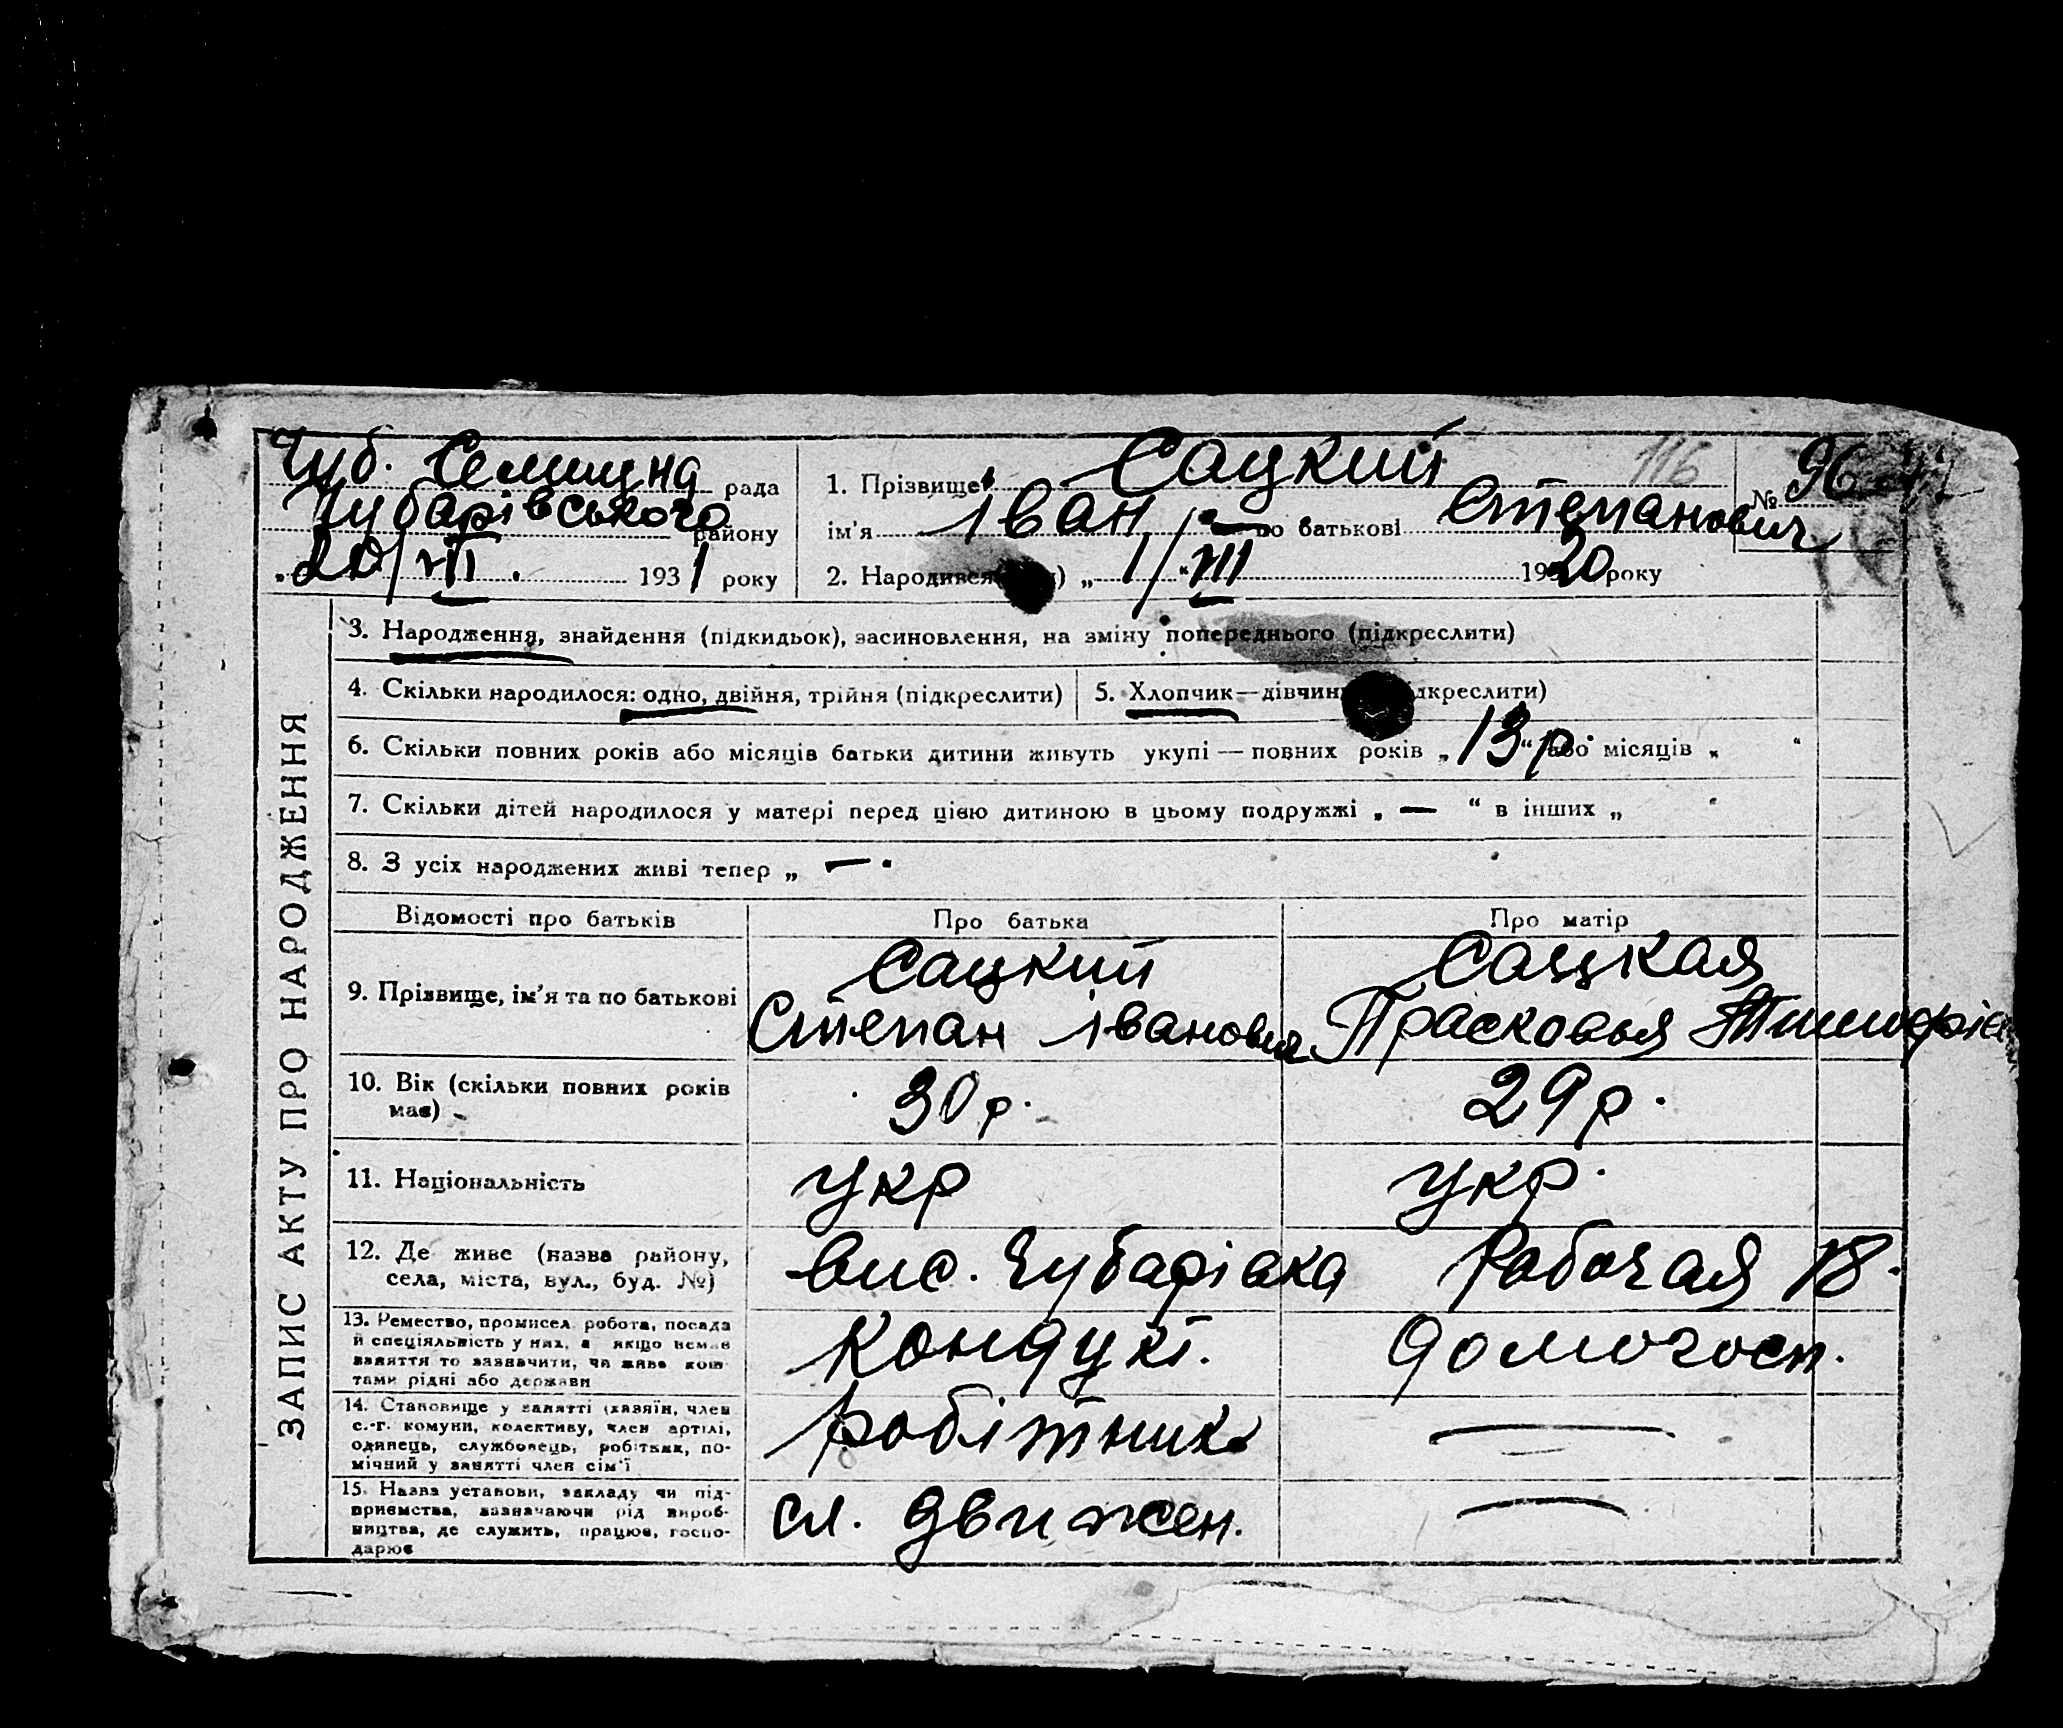 Чуб. Селищна рада
Чубарівського району
20/VIII. 1931 року
1. Прізвище Сацкий
116
№ 96
ім'я Іван по батькові Степанович
2. Народився „ 1/VIII 1920 року
ЗАПИС АКТУ ПРО НАРОДЖЕННЯ
3. Народження, знайдення (підкидьок), засиновлення, на зміну попереднього (підкреслити)
4. Скільки народилося: одно, двійня, трійня (підкреслити)
5. Хлопчик—дівчин дкреслити)
6. Скільки повних років або місяців батьки дитини живуть укупі — повних років „ 13 р. “ або місяців „ “
7. Скільки дітей народилося у матері перед цією дитиною в цьому подружжі „ — “ в інших „ “
8. З усіх народжених живі тепер „ — .
Відомості про батьків
Про батька
Про матір
9. Прізвище, ім'я та по батькові
Сацкий
Степан Іванович
Сацкая
Прасковья
10. Вік (скільки повних років
має)
30 р.
29 р.
11. Національність
укр
укр.
12. Де живе (назва району,
села, міста, вул., буд. №)
вис. Чубарівка Рабочая 18.
13. Ремество, промисел, робота, посада
й спеціяльність у них, а якщо немає
заняття то зазначити, чи живе кош-
тами рідні або держави
Кондукт.
домогосп.
14. Становище у занятті (хазяїн, член
с.-г. комуни, колективу, член артілі,
одинець, службовець, робітник, по-
мічний у занятті член сім'ї
робітник
—
15. Назва установи, закладу чи під-
приємства, зазначаючи рід вироб-
ництва, де служить, працює, госпо-
дарює
сл. движен.
—